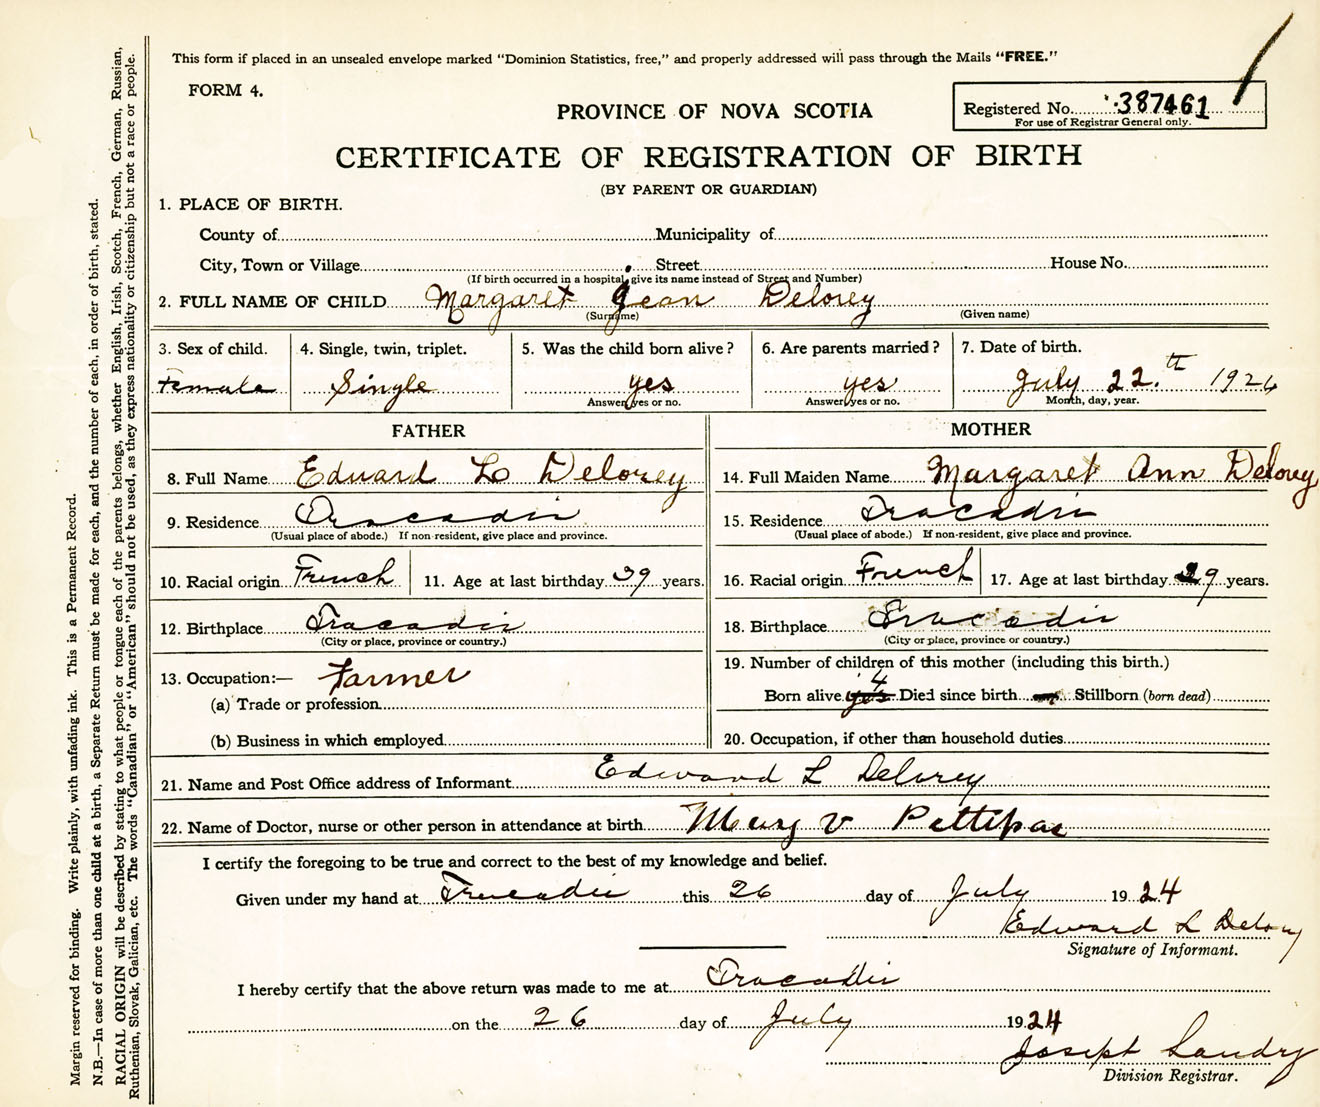 This form if placed in an unsealed envelope marked "Dominion Statistics, free," and properly addressed will pass through the Mails "FREE."
FORM 4.
PROVINCE OF NOVA SCOTIA
Registered No. 387461
For use of Registrar General only.
CERTIFICATE OF REGISTRATION OF BIRTH
(BY PARENT OR GUARDIAN)
1. PLACE OF BIRTH.
County of Municipality of
City, Town or Village Street House No.
(If birth occurred in a hospital, give its name instead of Street and Number)
2. FULL NAME OF CHILD Margaret Jean Delorey
(Surname) (Given name)
3. Sex of child. 4. Single, twin, triplet. 5. Was the child born alive? 6. Are parents married? 7. Date of birth.
Female Single yes yes July 22.th 1924
Answer yes or no. Answer yes or no. Month, day, year.
FATHER MOTHER
8. Full Name Edward L Delorey 14. Full Maiden Name Margaret Ann Delorey
9. Residence Tracadie 15. Residence Tracadie
(Usual place of abode.) If non-resident, give place and province. (Usual place of abode.) If non-resident, give place and province.
10. Racial origin French 11. Age at last birthday 39 years. 16. Racial origin French 17. Age at last birthday 39 years.
12. Birthplace Tracadie 18. Birthplace Tracadie
(City or place, province or country.) (City or place, province or country.)
13. Occupation:— Farmer 19. Number of children of this mother (including this birth.)
(a) Trade or profession Born alive 4 Died since birth Stillborn (born dead)
(b) Business in which employed 20. Occupation, if other than household duties
21. Name and Post Office address of Informant Edward L Delorey
22. Name of Doctor, nurse or other person in attendance at birth Mary V Pettipas
I certify the foregoing to be true and correct to the best of my knowledge and belief.
Given under my hand at Tracadie this 26 day of July 1924
Edward L Delorey
Signature of Informant.
I hereby certify that the above return was made to me at Tracadie
on the 26 day of July 1924
Joseph Landry
Division Registrar.
Margin reserved for binding. Write plainly, with unfading ink. This is a Permanent Record.
N.B.—In case of more than one child at a birth, a Separate Return must be made for each, and the number of each, in order of birth, stated.
RACIAL ORIGIN will be described by stating to what people or tongue each of the parents belongs, whether English, Irish, Scotch, French, German, Russian,
Ruthenian, Slovak, Galician, etc. The words "Canadian" or "American" should not be used, as they express nationality or citizenship but not a race or people.